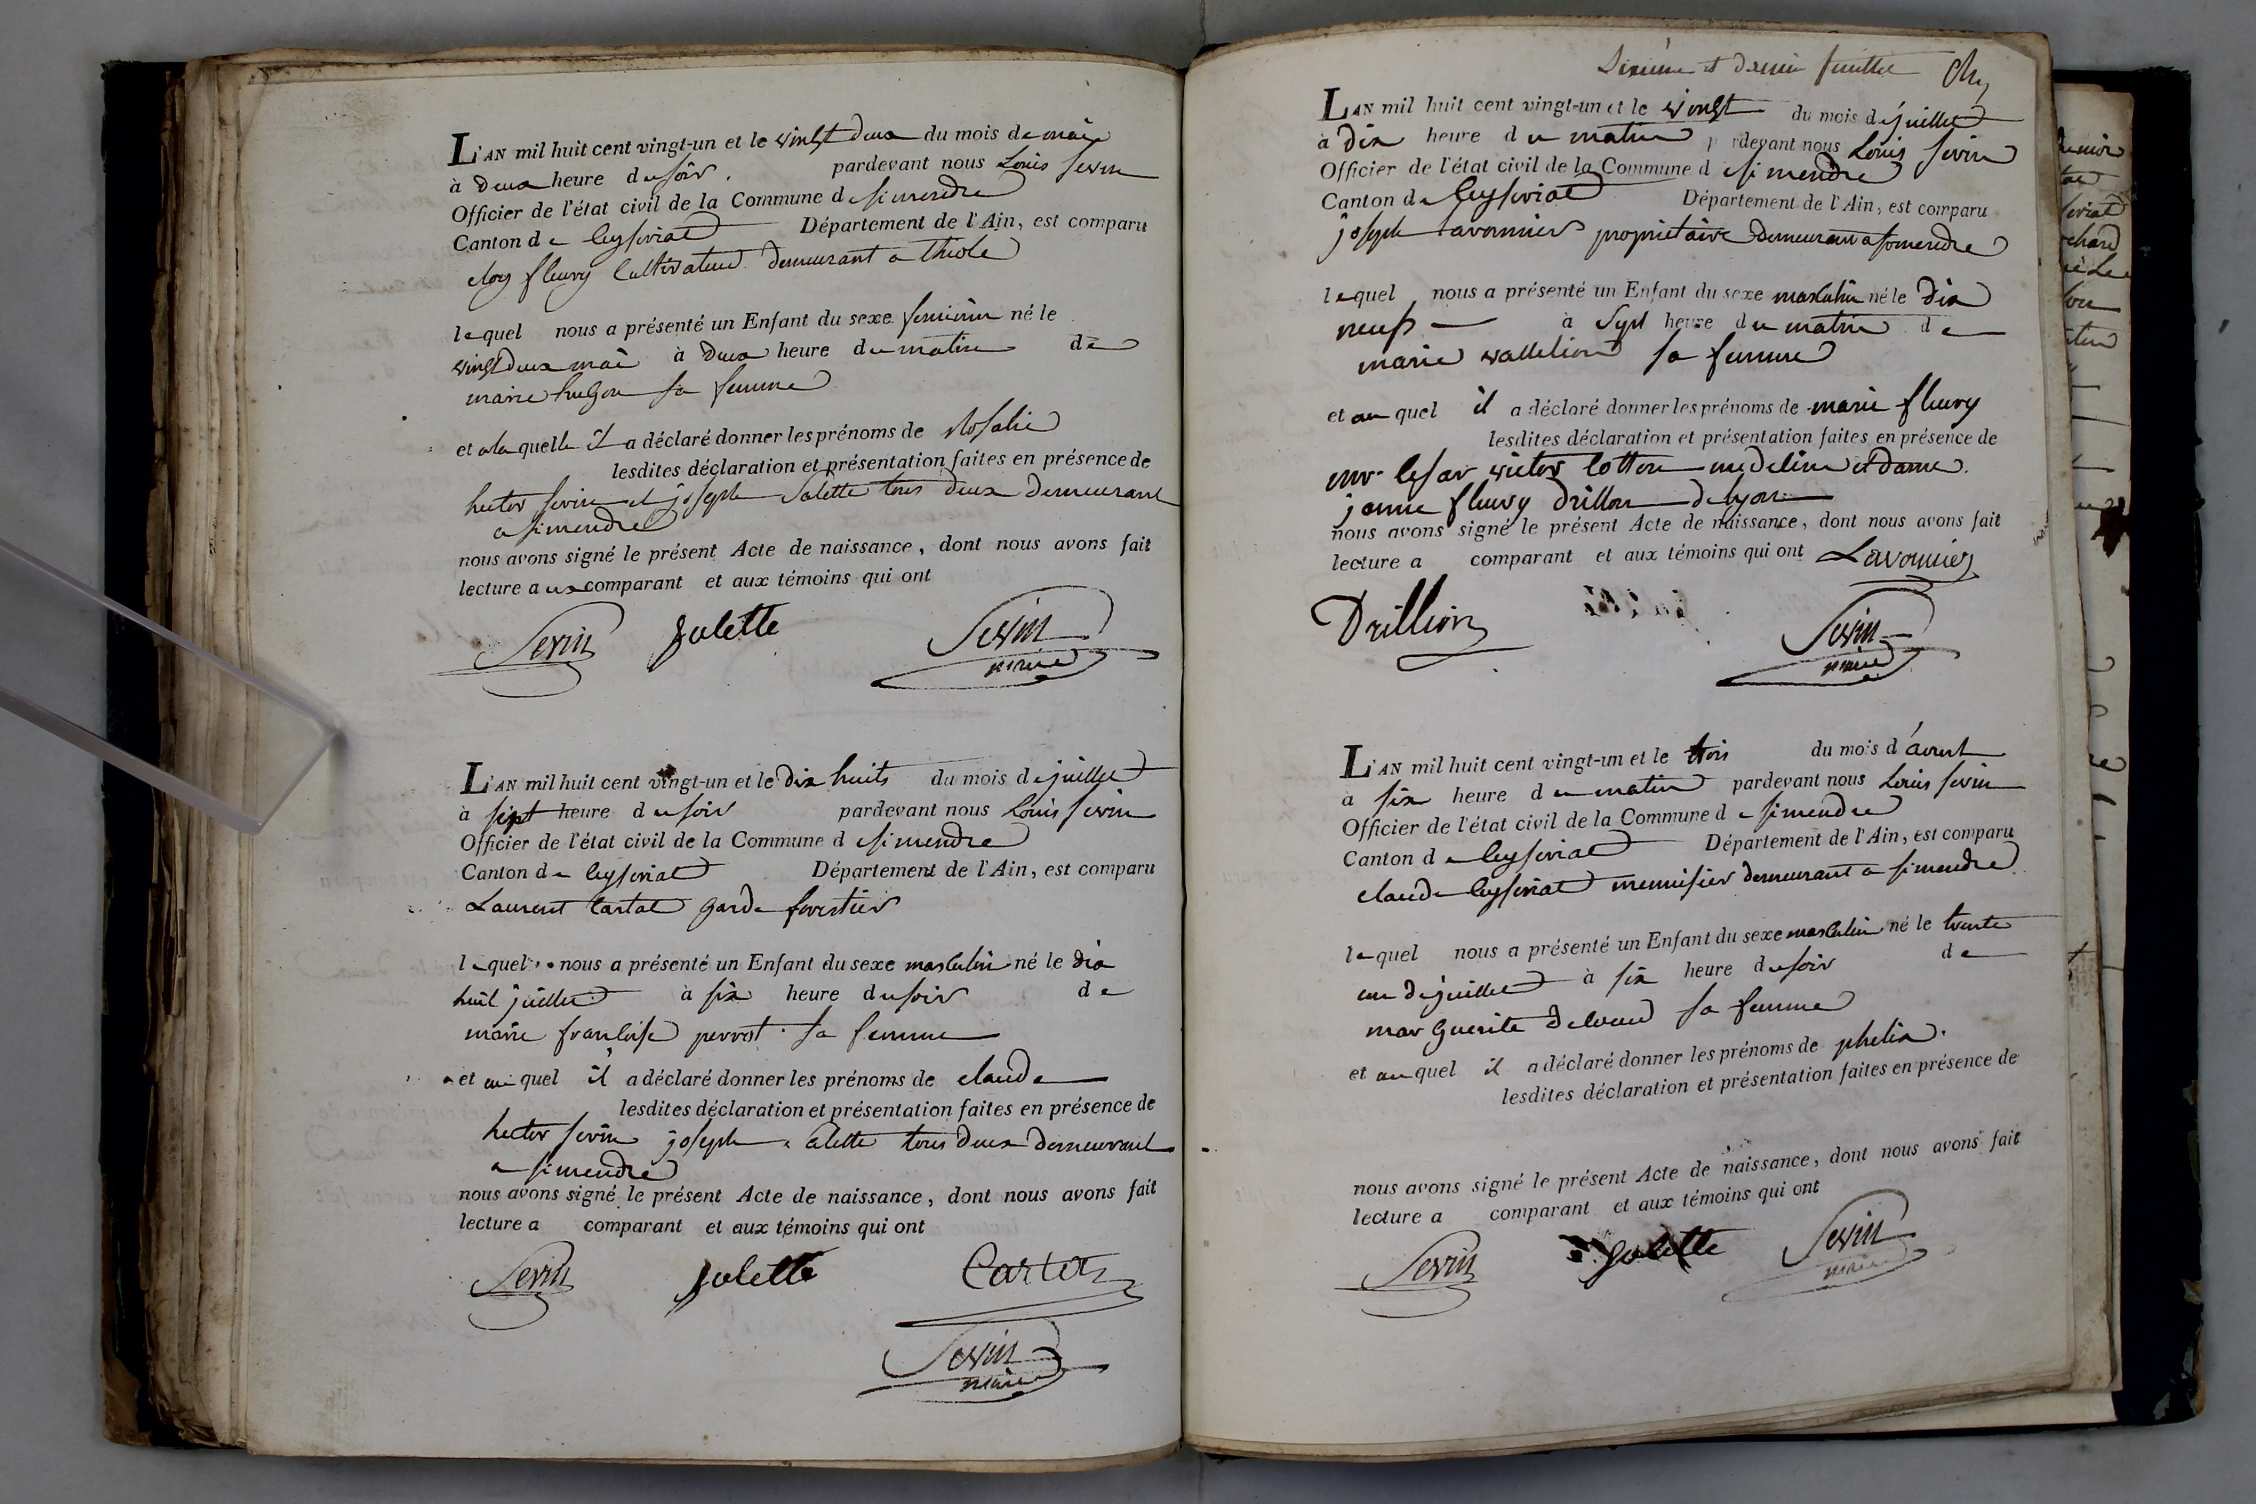 L'AN mil huit cent vingt-un et le vingt deux du mois de mai
à deux heure du soir pardevant nous Louis Sevin
Officier de l'état civil de la Commune d Simendre
Canton de Ceyseriat Département de l'Ain, est comparu
eloy fleury Cultivateur demeurant a thiole
lequel nous a présenté un Enfant du sexe feminin né le
vingt deux mai à deux heure du matin de
marie hugon sa femme
et a la quelle il a déclaré donner les prénoms de Rosalie
lesdites déclaration et présentation faites en présence de
hector sevin et joseph Jalette tous deux demeurant
a simendre
nous avons signé le présent Acte de naissance, dont nous avons fait
lecture aux comparant et aux témoins qui ont
Sevin Jalette Sevin
maire
L'AN mil huit cent vingt-un et le dix huits du mois de juillet
à sept heure du soir pardevant nous Louis Sevin
Officier de l'état civil de la Commune d Simendre
Canton de Ceyseriat Département de l'Ain, est comparu
Laurent Cartat garde forestier
lequel nous a présenté un Enfant du sexe masculin né le dix
huit juillet à six heure du soir de
marie francoise perrot sa femme
et au quel il a déclaré donner les prénoms de claude
lesdites déclaration et présentation faites en présence de
hector sevin joseph alette tous deux demeurant
a simendre
nous avons signé le présent Acte de naissance, dont nous avons fait
lecture a comparant et aux témoins qui ont
Sevin Jalette Cartat
Sevin
maire
Sixieme et dernier feuillet
L'AN mil huit cent vingt-un et le vingt du mois de juillet
à dix heure du matin pardevant nous Louis Sevin
Officier de l'état civil de la Commune d Simendre
Canton de Ceyseriat Département de l'Ain, est comparu
joseph lavonnier proprietaire demeurant a simendre
lequel nous a présenté un Enfant du sexe masculin né le dix
neuf à sept heure du matin de
marie sa femme
et au quel il a déclaré donner les prénoms de marie fleury
lesdites déclaration et présentation faites en présence de
mr Cesar victor medecin et dame
jeanne fleury drillon de lyon
nous avons signé le présent Acte de naissance, dont nous avons fait
lecture a comparant et aux témoins qui ont Lavonnier
Drillion Sevin
maire
L'AN mil huit cent vingt-un et le trois du mois d'avout
à six heure du matin pardevant nous Louis Sevin
Officier de l'état civil de la Commune d Simendre
Canton de Ceyseriat Département de l'Ain, est comparu
claude Ceyseriat menuisier demeurant a simendre
lequel nous a présenté un Enfant du sexe masculin né le trente
un de juillet à six heure du soir de
marguerite sa femme
et au quel il a déclaré donner les prénoms de phelix
lesdites déclaration et présentation faites en présence de
nous avons signé le présent Acte de naissance, dont nous avons fait
lecture a comparant et aux témoins qui ont
Sevin Jalette Sevin
maire